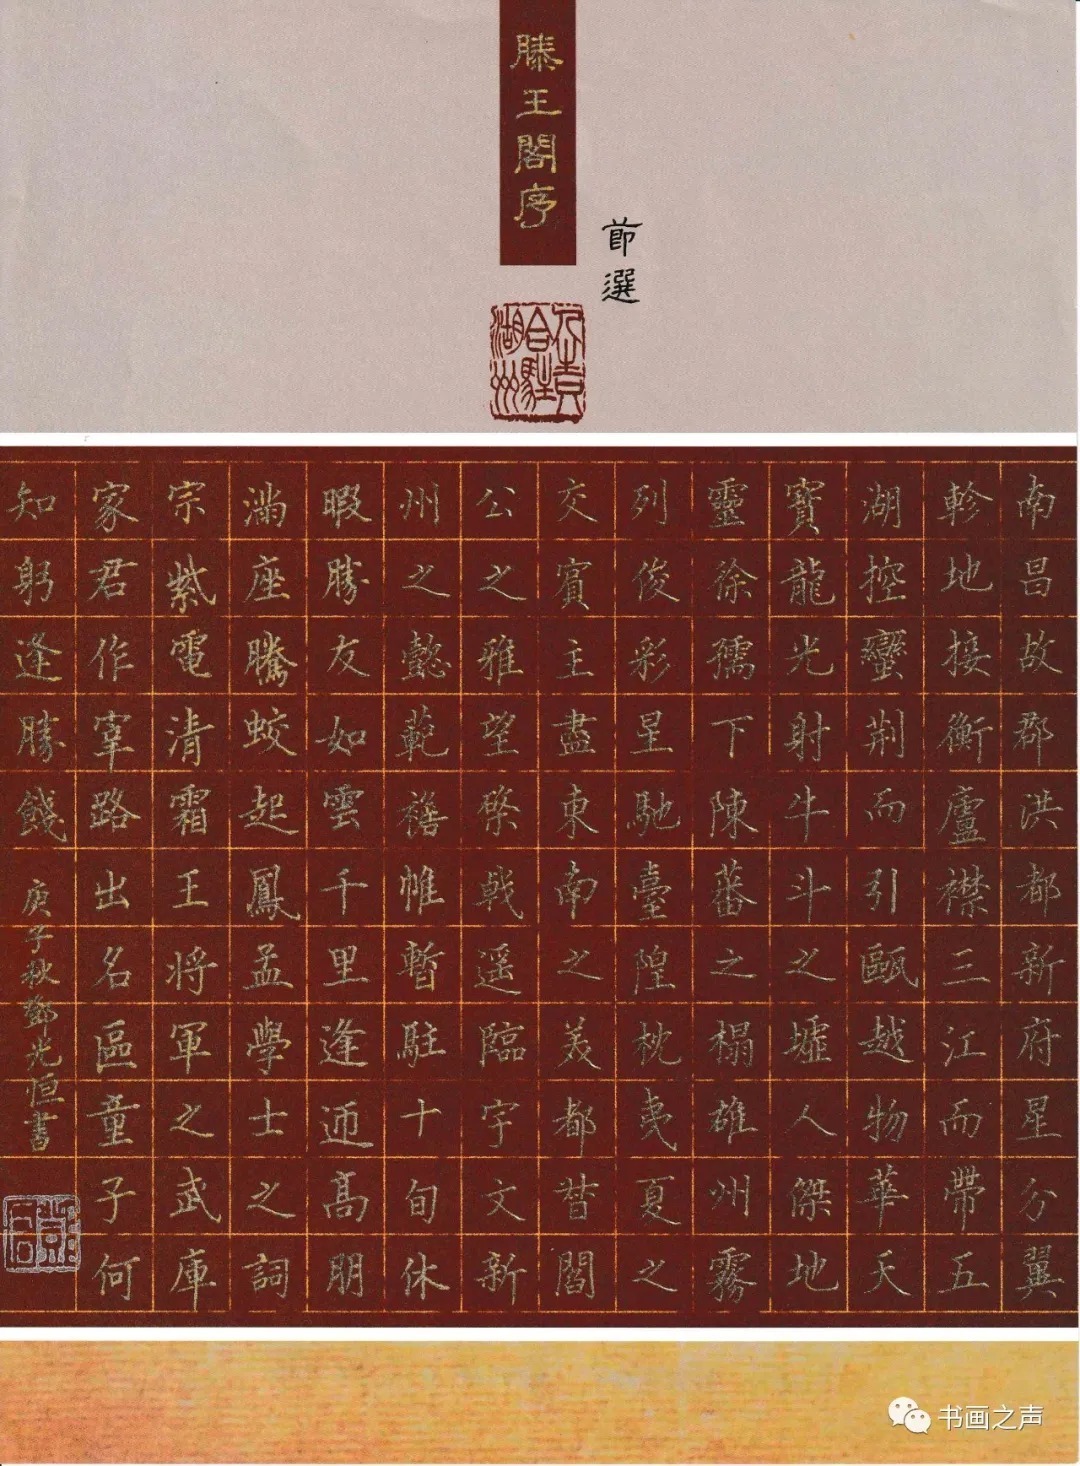 滕王閣序
節選
南昌故郡洪都新府星分翼
軫地接衡廬襟三江而帶五
湖控蠻荆而引甌越物華天
寶龍光射牛斗之墟人傑地
靈徐孺下陳蕃之榻雄州霧
列俊彩星馳臺隍枕夷夏之
交賓主盡東南之美都昔閻
公之雅望棨戟遥臨宇文新
州之懿範襜帷暫駐十旬休
暇勝友如雲千里逢迎高朋
滿座騰蛟起鳳孟學士之詞
宗紫電清霜王將軍之武庫
家君作宰路出名區童子何
知躬逢勝餞
庚子秋鄧光恒書
书画之声